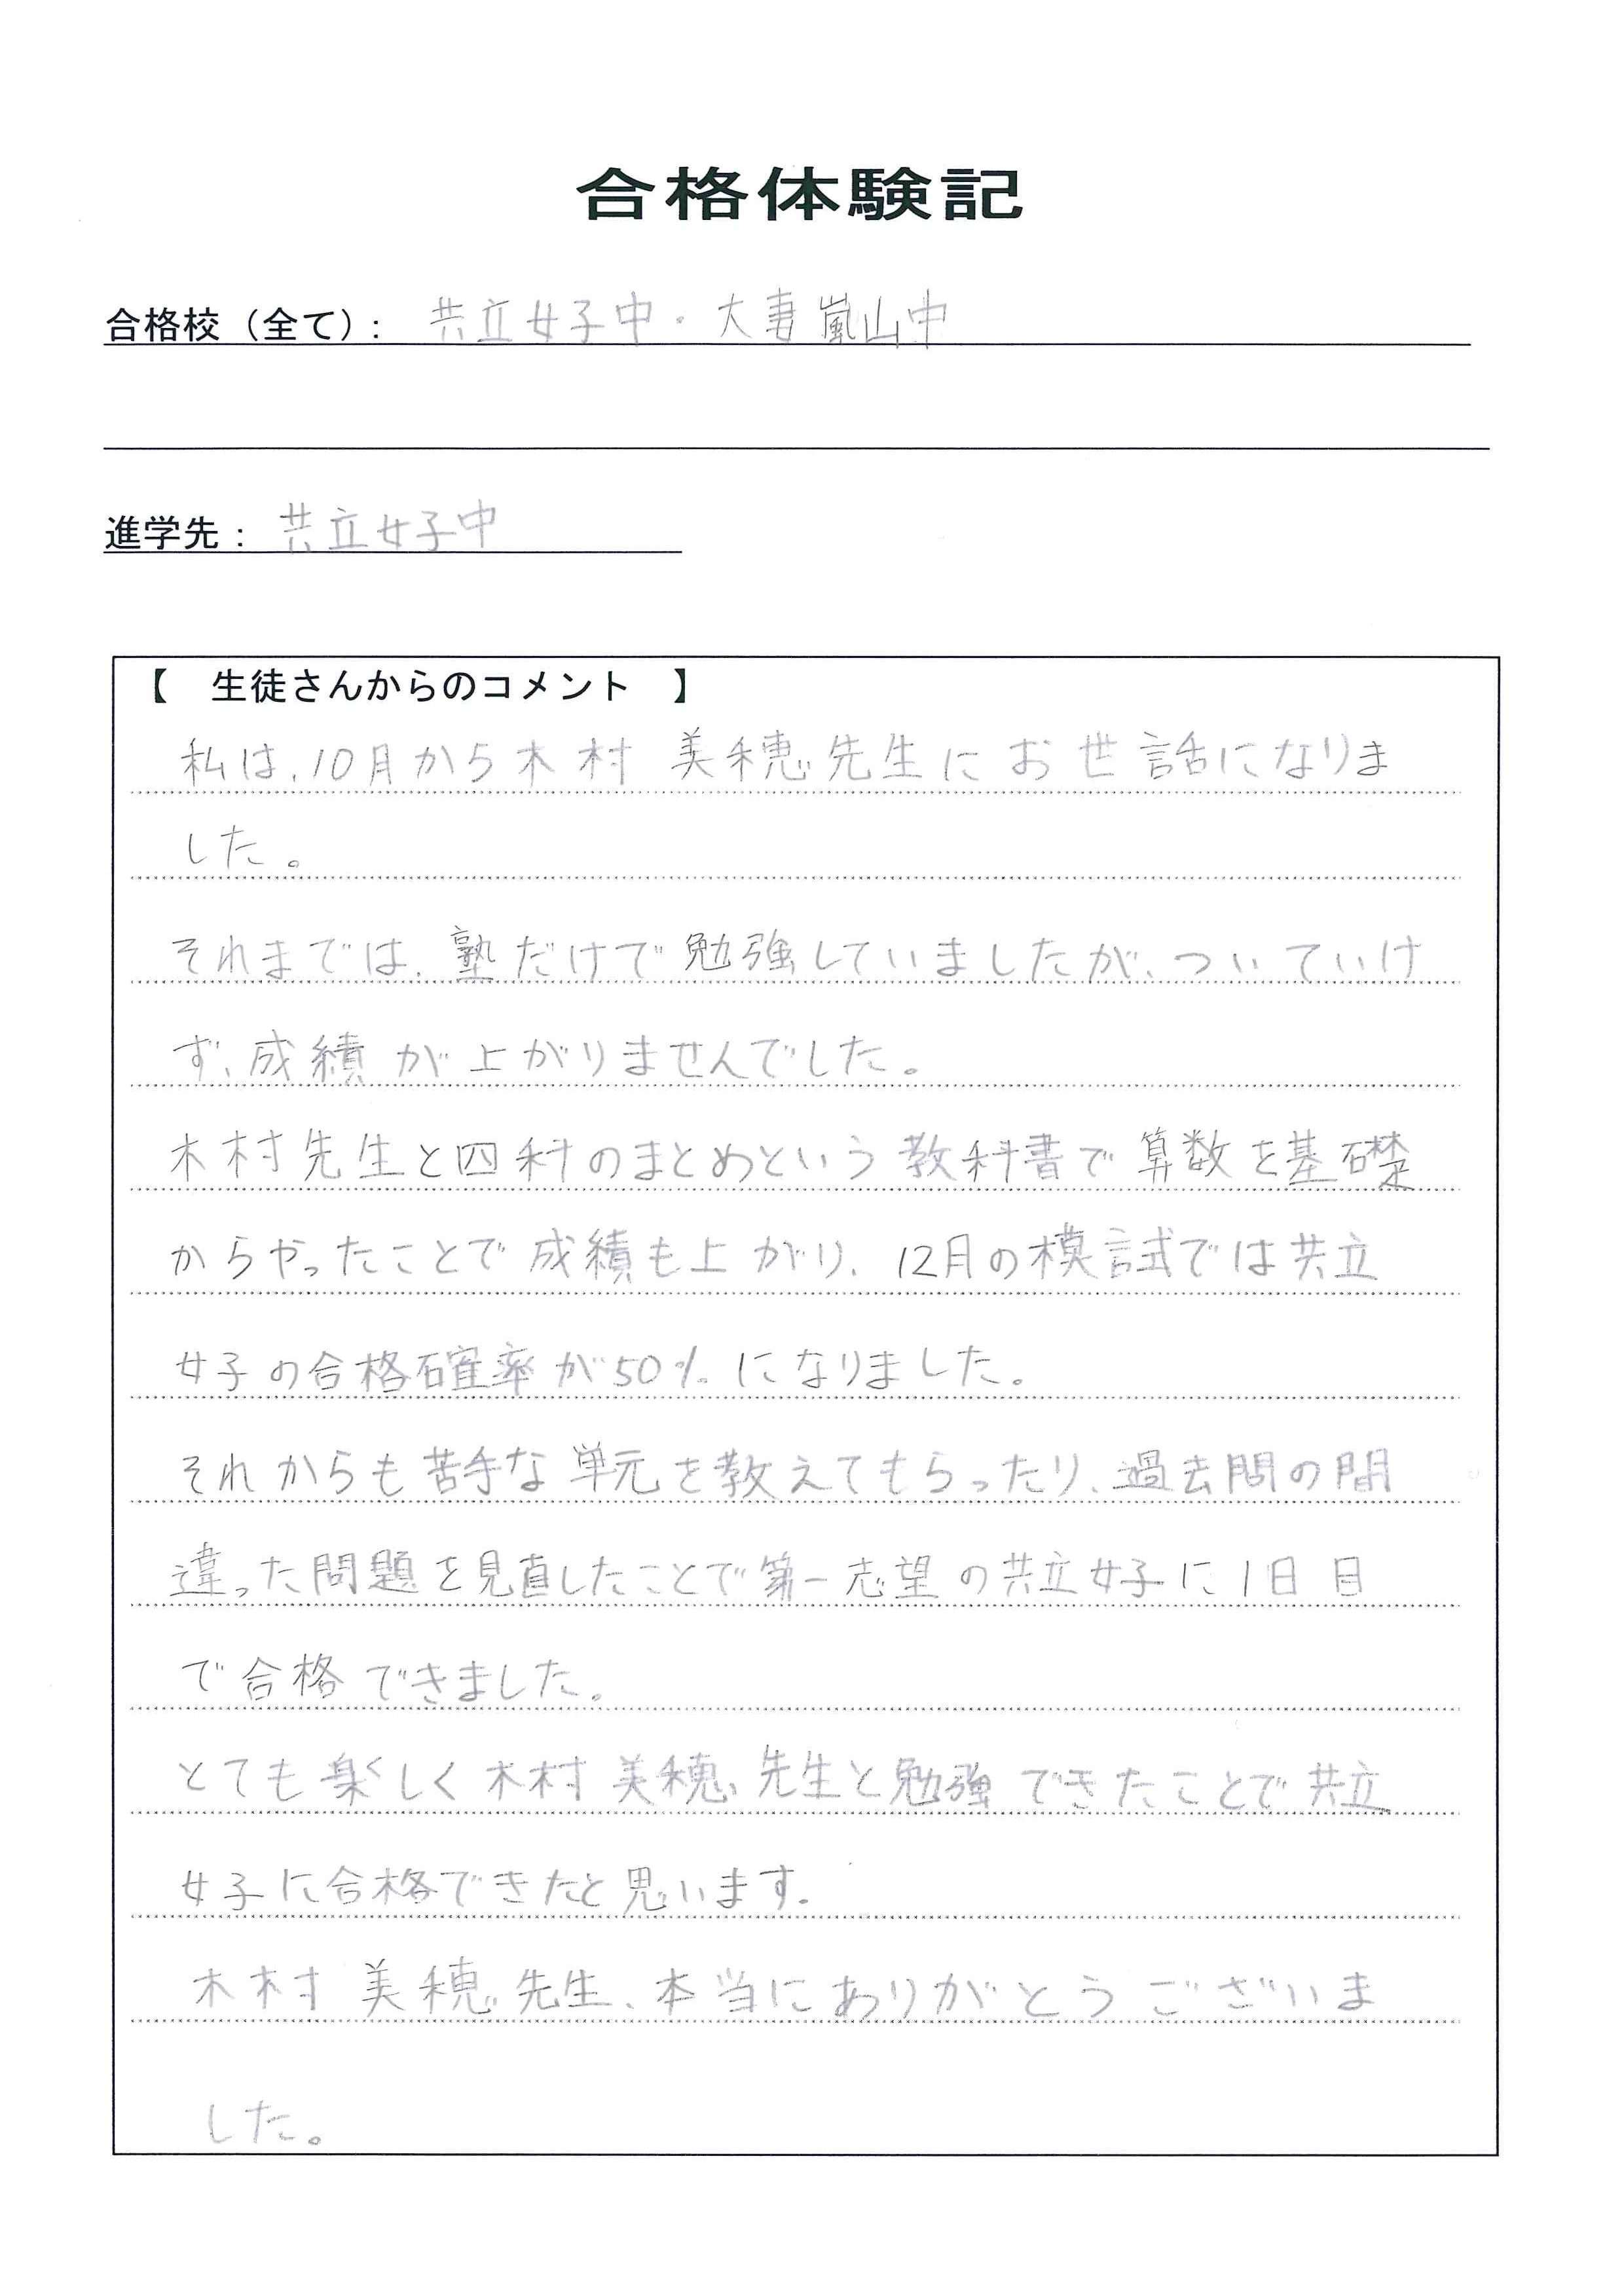 合格体験記
合格校（全て）： 共立女子中・大妻嵐山中
進学先： 共立女子中
【　生徒さんからのコメント　】
私は、10月から木村 美穂先生にお世話になりま
した。
それまでは、塾だけで勉強していましたが、ついていけ
ず、成績が上がりませんでした。
木村先生と四科のまとめという教科書で算数を基礎
からやったことで成績も上がり、12月の模試では共立
女子の合格確率が50%になりました。
それからも苦手な単元を教えてもらったり、過去問の間
違った問題を見直したことで第一志望の共立女子に1日目
で合格できました。
とても楽しく木村美穂先生と勉強できたことで共立
女子に合格できたと思います。
木村 美穂先生、本当にありがとうございま
した。